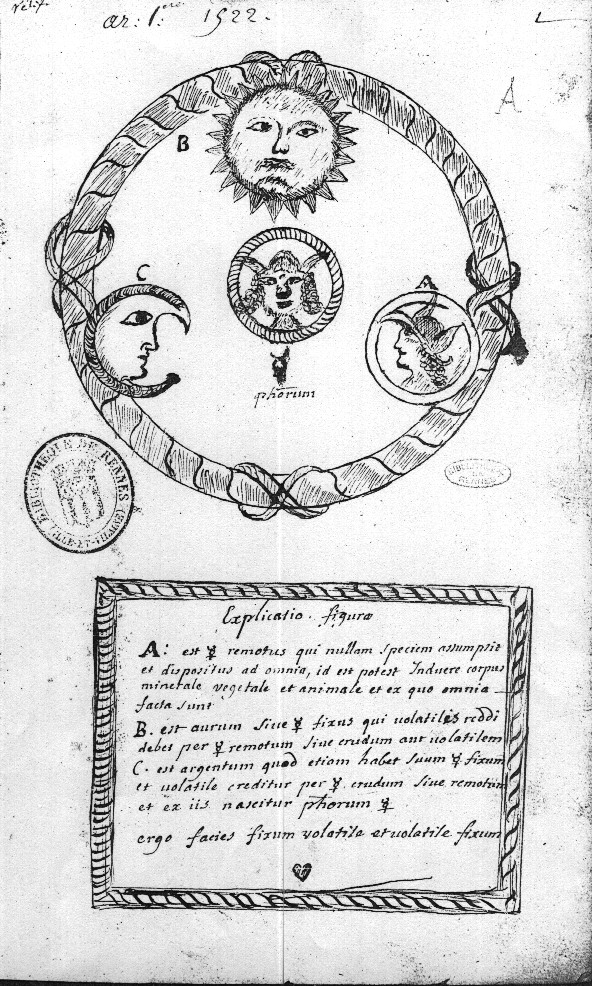 ar: 1.ere 1522.
A
B
C
phōrum
BIBLIOTHEQUE DE RENNES (VILLE) ILLE-ET-VIL
BIBLIOTHE
RENNES
Explicatio. figuræ
A: est ☿ remotus qui nullam speciem assumpsit
et dispositus ad omnia, id est potest Induere corpus
minerale vegetale et animale et ex quo omnia
facta sunt
B. est aurum sive ☿ fixus qui volatilis reddi
debet per ☿ remotum sive crudum aut volatilem
C. est argentum quod etiam habet suum ☿ fixum
et volatile creditur per ☿. crudum sive remotum
et ex iis nascitur phōrum ☿
ergo facies fixum volatile et volatile fixum